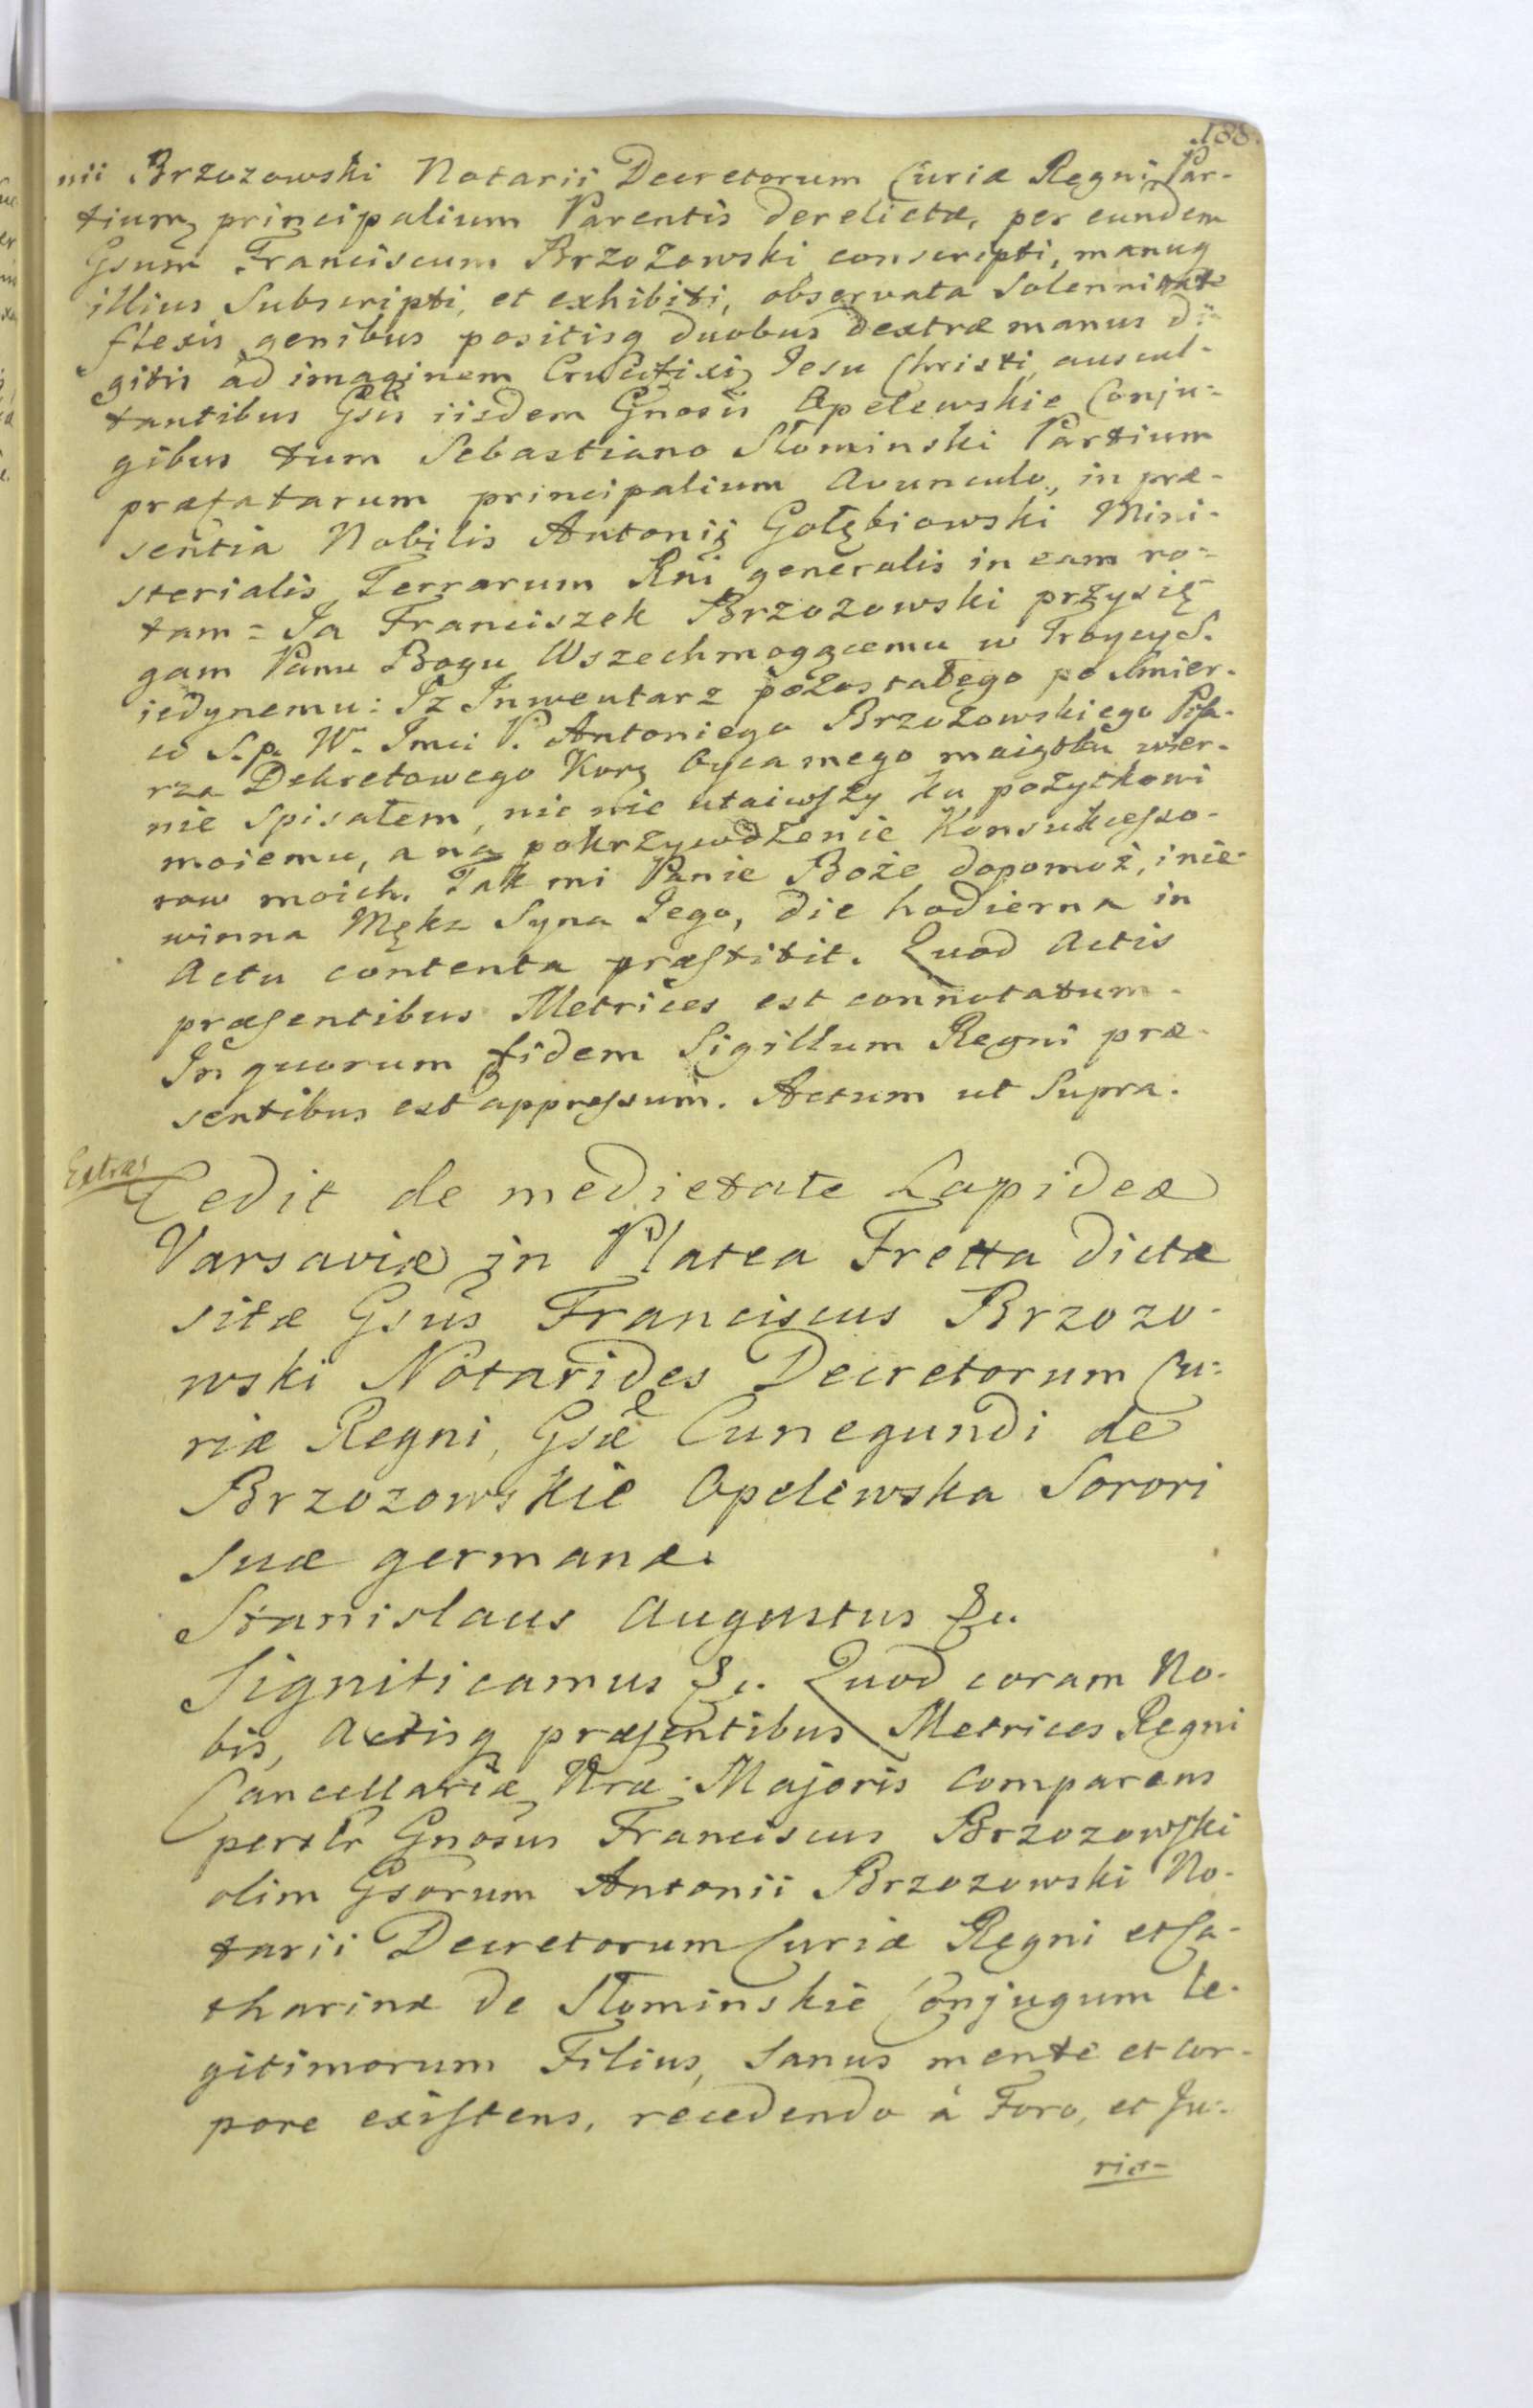 188.
nii Brzozowski Notarii Decretorum Curiæ Regni Par-
tiumq principalium Parentis derelictæ, per eundem
Gsum Franciscum Brzozowski conscripti, manuq
illius Subscripti, et exhibiti, observata Solennitate
flexis genibus positisq duobus dextræ manus di-
gitis ad imaginem Crucifixi Jesu Christi, auscul-
tantibus Gsis iisdem Gnosis Opelewskie Conju-
gibus tum Sebastiano Słominski Partium
præfatarum principalium Avunculo, in præ-
sentia Nobilis Antonii Gołębiowski Mini-
sterialis Terrarum Rni generalis in eam ro-
tam = Ja Franciszek Brzozowski przysię
gam Panu Bogu Wszechmogącemu w Troycy S.
jedynemu: Iż Inwentarz pozostałego po śmier-
ci S.p. W. Imci P. Antoniego Brzozowskiego Pisa-
rza Dekretowego Kor: Oyca mego maiątku wier-
nie Spisałem, nic nie utaiwszy ku pożytkowi
moiemu, a na pokrzywdzenie Konsukcesso-
row moich. Tak mi Panie Boże dopomoż, i nie-
winna Męka Syna Jego, die hodierna in
Actu contenta præstitit. Quod Actis
præsentibus Metrices est connotatum.
In quorum fidem Sigillum Regni præ-
sentibus est appressum. Actum ut Supra.
Extras
Cedit de medietate Lapideæ
Varsaviæ in Platea Fretta dicta
sitæ Gsus Franciscus Brzozo-
wski Notarides Decretorum Cu-
riæ Regni, Gsæ Cunegundi de
Brzozowskie Opelewska Sorori
suæ germanæ.
Stanislaus Augustus &c.
Significamus &c. Quod coram No-
bis, Actisq præsentibus Metrices Regni
Cancellariæ Nræ Majoris Comparens
personlr Gnosus Franciscus Brzozowski
olim Gsorum Antonii Brzozowski No-
tarii Decretorum Curiæ Regni et Ca-
tharinæ de Słominskie Conjugum le-
gitimorum Filius, Sanus mente et cor-
pore existens, recedendo à Foro, et Ju-
ris-